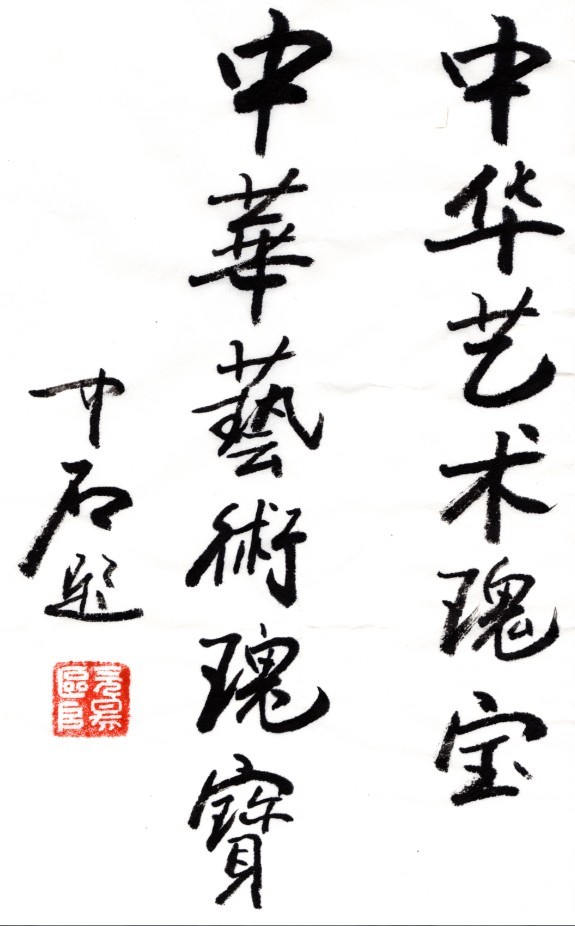 中华艺术瑰宝
中華藝術瑰寶
中石题